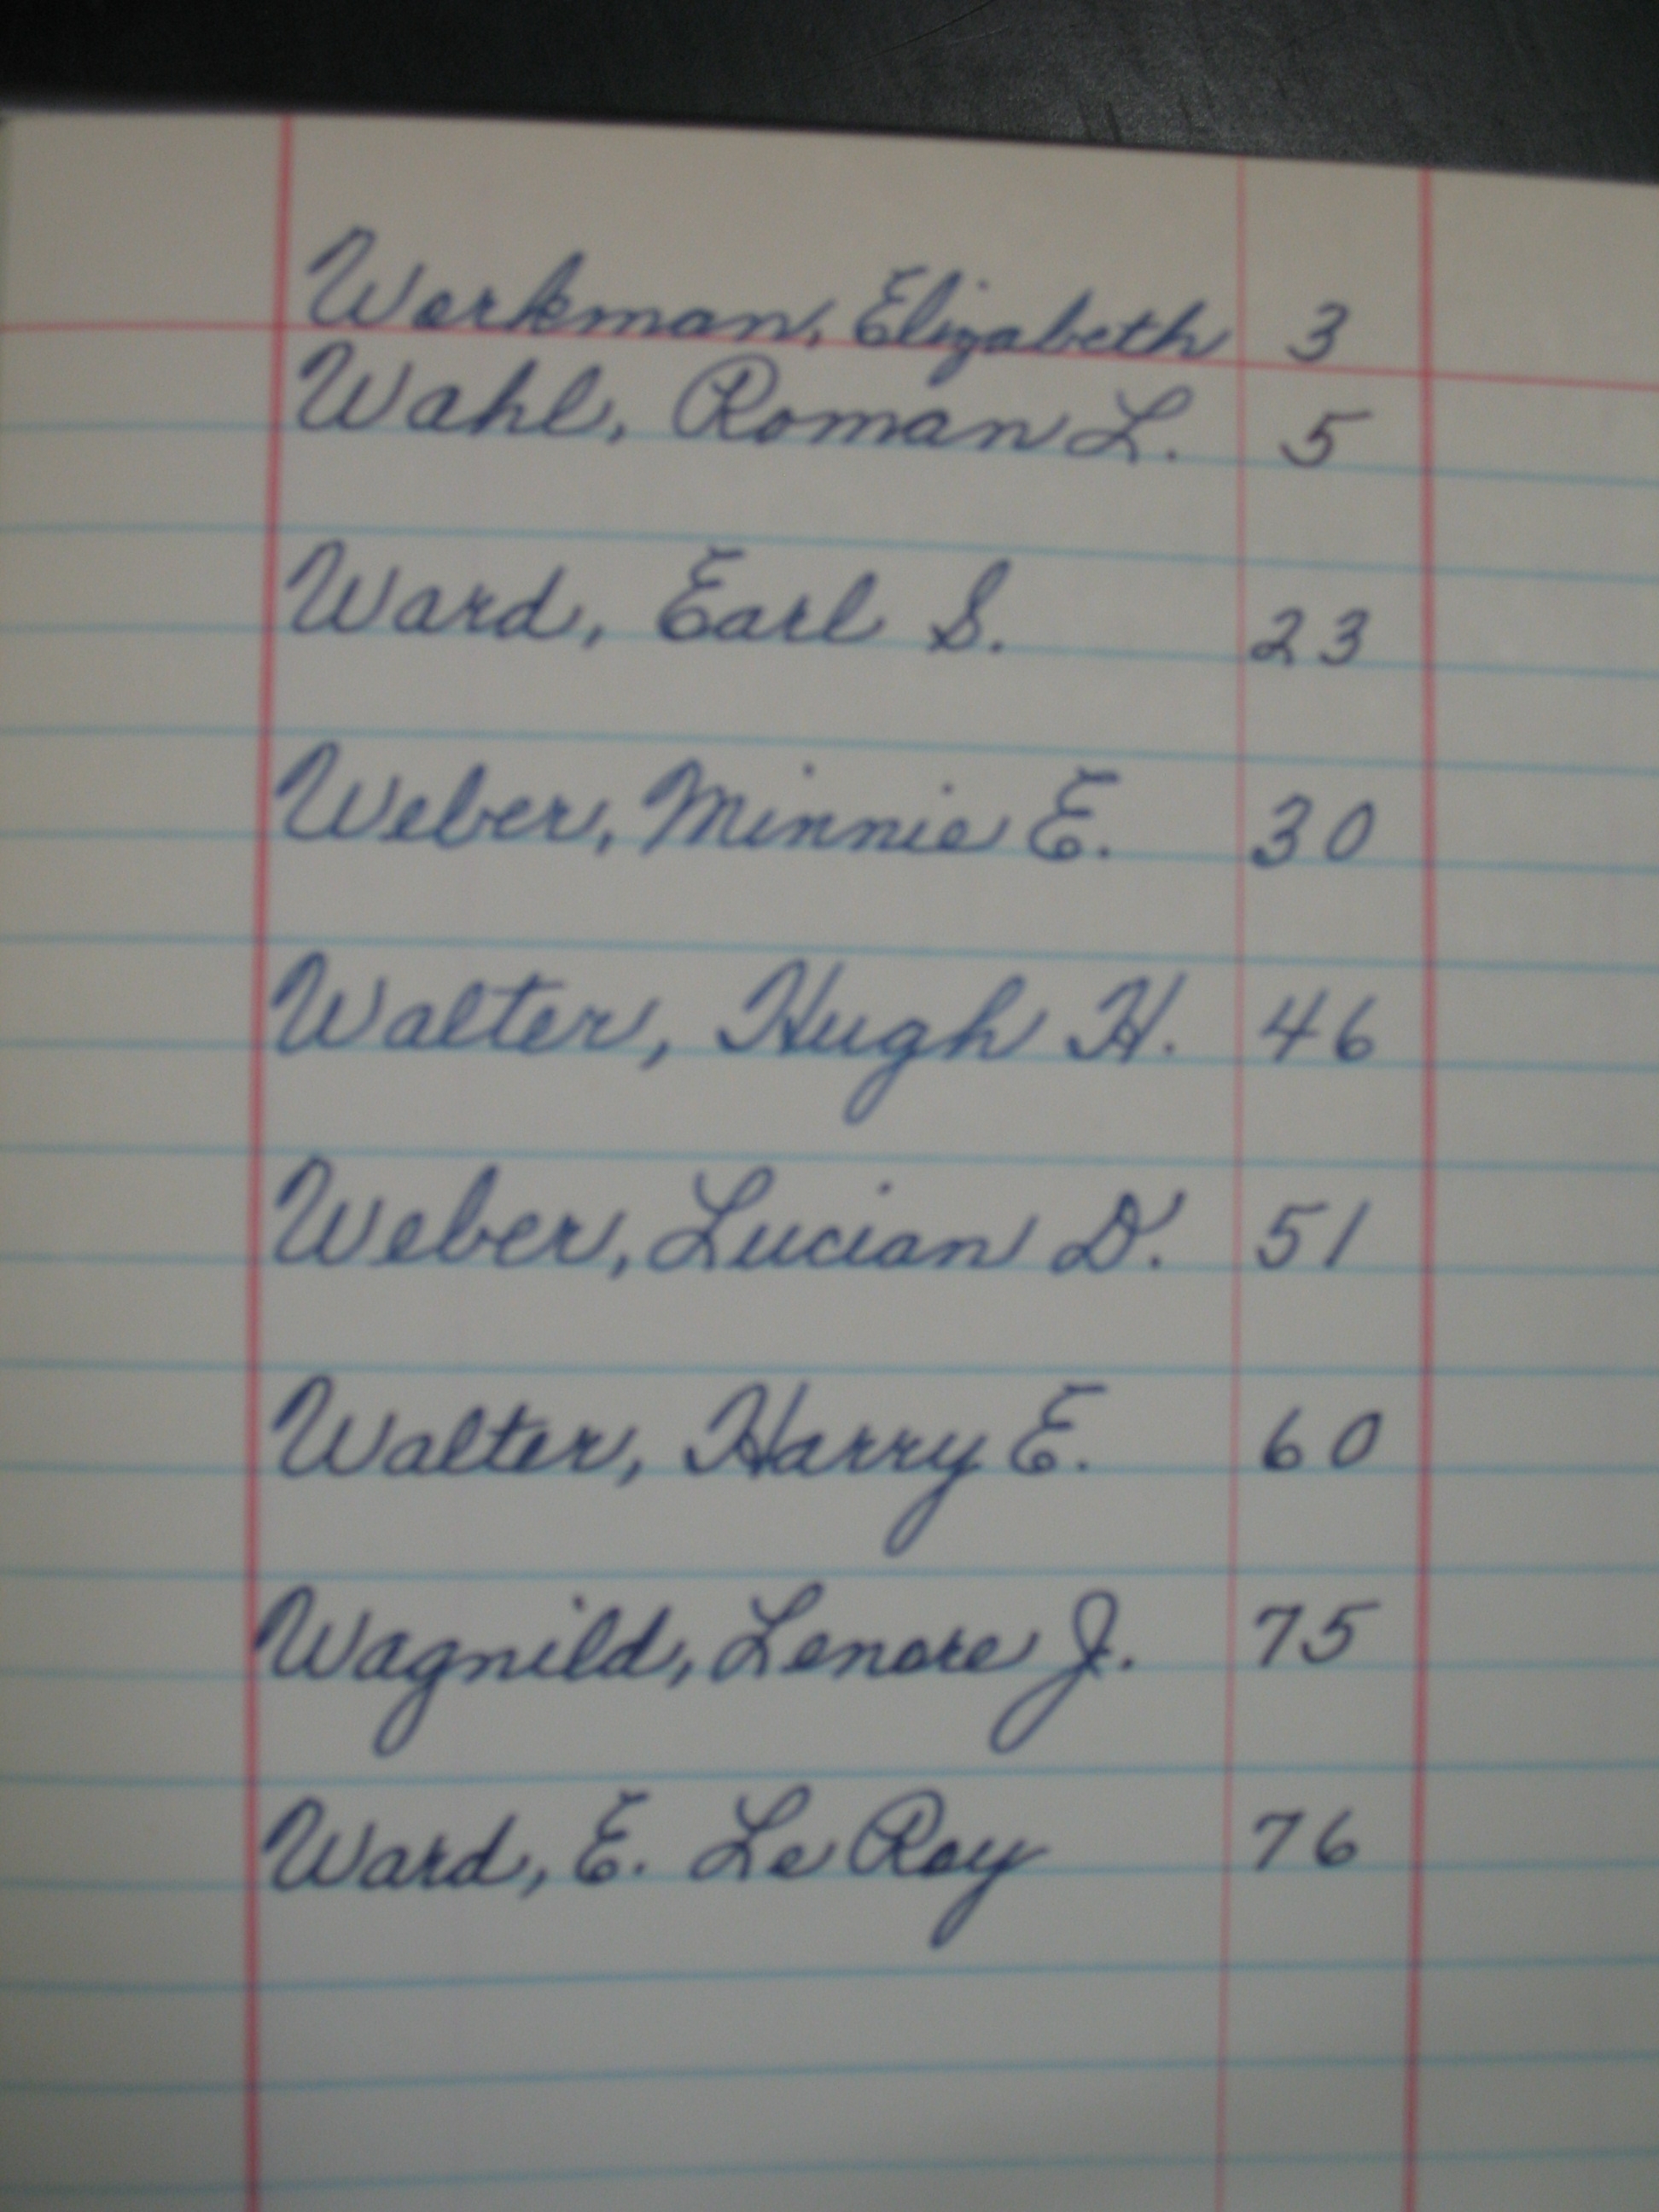 Workman, Elizabeth 3
Wahl, Roman L. 5
Ward, Earl S. 23
Weber, Minnie E. 30
Walter, Hugh H. 46
Weber, Lucian D. 51
Walter, Harry E. 60
Wagnild, Lenore J. 75
Ward, E. Le Roy 76